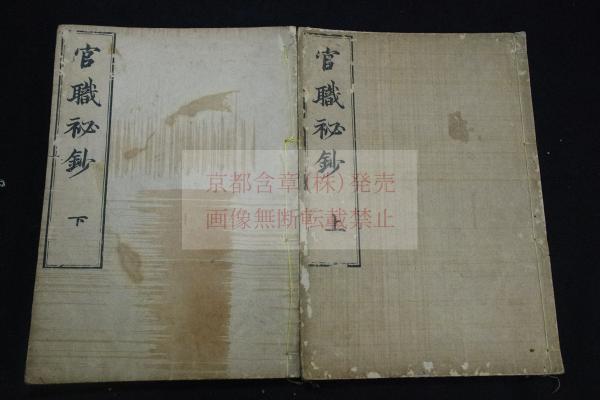 官職祕鈔
上
官職祕鈔
下
京都含章(株)発売
画像無断転載禁止